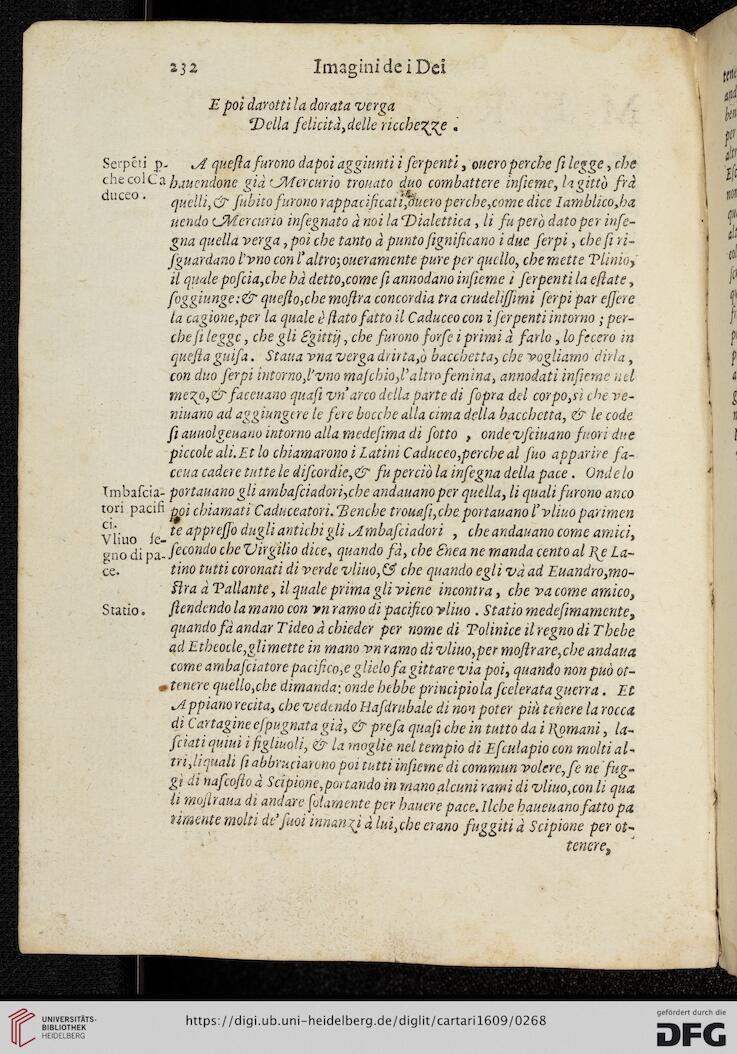 232 Imagini de i Dei
E poi darotti la dorata verga
Della felicità, delle ricchezze.
Serpẽti p-
che col Ca
duceo.
A queſta furono dapoi aggiunti i ſerpenti, ouero perche ſi legge, che
hauendone già Mercurio trouato duo combattere inſieme, la gittò frà
quelli, & ſubito furono rappacificati, ouero perche, come dice Iamblico, ha
uendo Mercurio inſegnato à noi la Dialettica, li fu però dato per inſe-
gna quella verga, poi che tanto à punto ſignificano i due ſerpi, che ſi ri-
ſguardano l'vno con l'altro; oueramente pure per quello, che mette Plinio,
il quale poſcia, che hà detto, come ſi annodano inſieme i ſerpenti la eſtate,
ſoggiunge: & queſto, che moſtra concordia tra crudeliſſimi ſerpi par eſſere
la cagione, per la quale è ſtato fatto il Caduceo con i ſerpenti intorno; per-
che ſi legge, che gli Egittij, che furono forſe i primi à farlo, lo fecero in
queſta guiſa. Staua vna verga drirta, ò bacchetta, che vogliamo dirla,
con duo ſerpi intorno, l'vno maſchio, l'altro femina, annodati inſieme nel
mezo, & faceuano quaſi vn'arco della parte di ſopra del corpo, sì che ve-
niuano ad aggiungere le fere bocche alla cima della bacchetta, & le code
ſi auuolgeuano intorno alla medeſima di ſotto, onde vſciuano fuori due
piccole ali. Et lo chiamarono i Latini Caduceo, perche al ſuo apparire fa-
ceua cadere tutte le diſcordie, & fu perciò la inſegna della pace. Onde lo
Imbaſcia-
tori pacifi
ci.
portauano gli ambaſciadori, che andauano per quella, li quali furono anco
poi chiamati Caduceatori. Benche trouaſi, che portauano l'vliuo parimen
te appreſſo dugli antichi gli Ambaſciadori, che andauano come amici,
Vliuo ſe-
gno di pa-
ce.
ſecondo che Virgilio dice, quando fà, che Enea ne manda cento al Re La-
tino tutti coronati di verde vliuo, & che quando egli và ad Euandro, mo-
ſtra à Pallante, il quale prima gli viene incontra, che va come amico,
Statio.
ſtendendo la mano con vn ramo di pacifico vliuo. Statio medeſimamente,
quando fà andar Tideo à chieder per nome di Polinice il regno di Thebe
ad Etheocle, gli mette in mano vn ramo di vliuo, per moſtrare, che andaua
come ambaſciatore pacifico, e glielo fa gittare via poi, quando non può ot-
tenere quello, che dimanda: onde hebbe principio la ſcelerata guerra. Et
Appiano recita, che vedendo Haſdrubale di non poter più tenere la rocca
di Cartagine eſpugnata già, & preſa quaſi che in tutto da i Romani, la-
ſciati quiui i figliuoli, & la moglie nel tempio di Eſculapio con molti al-
tri, li quali ſi abbruciarono poi tutti inſieme di commun volere, ſe ne fug-
gì di naſcoſto à Scipione, portando in mano alcuni rami di vliuo, con li qua
li moſtraua di andare ſolamente per hauere pace. Ilche haueuano fatto pa
rimente molti de' ſuoi innanzi à lui, che erano fuggiti à Scipione per ot-
tenere,
UNIVERSITÄTS-
BIBLIOTHEK
HEIDELBERG
https://digi.ub.uni-heidelberg.de/diglit/cartari1609/0268
gefördert durch die
DFG